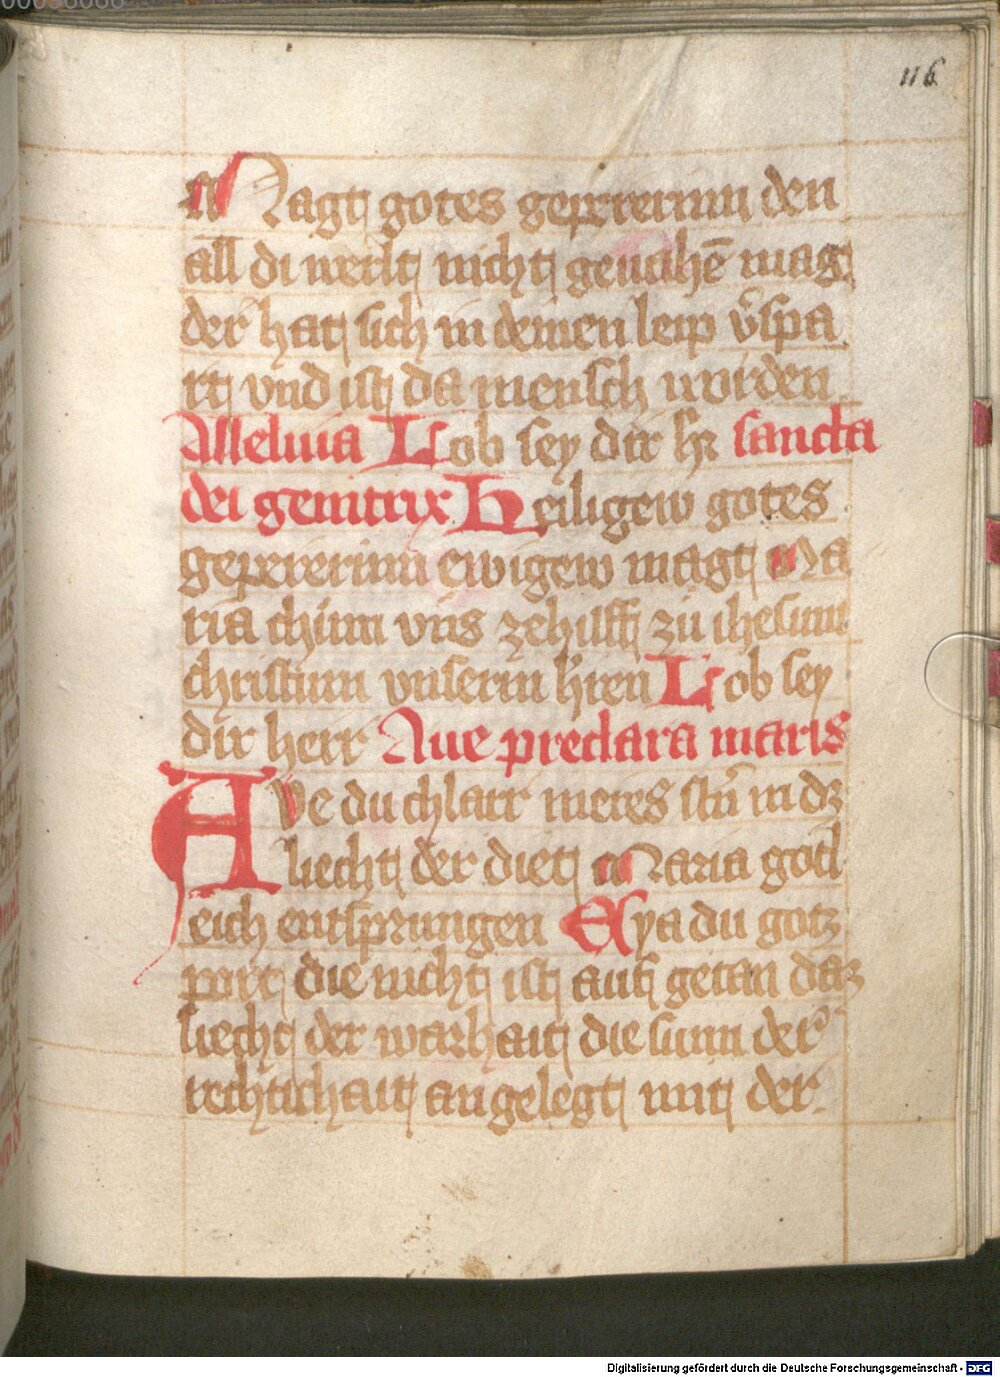 116
Magt gotes gepererinn den
all di werlt nicht gevahē mag
der hat sich in deinen leip v̄spa
rt vnd ist da mensch worden
Alleluia Lob sey dir hr̄ sancta
dei genitrix Heiligew gotes
gepererinn ewigew magt Ma
ria chum vns zehilff zu ihesum
christum vnserm hr̄ren Lob sey
dir herr Aue preclara maris
AVe du chlarr meres stn̄ in dz
liecht der diet Maria gotl
eich entsprungen Eya du gotz
port die nicht ist auf getan daz
liecht der warhait die sunn der
rechtichait angelegt mit der
Digitalisierung gefördert durch die Deutsche Forschungsgemeinschaft - DFG